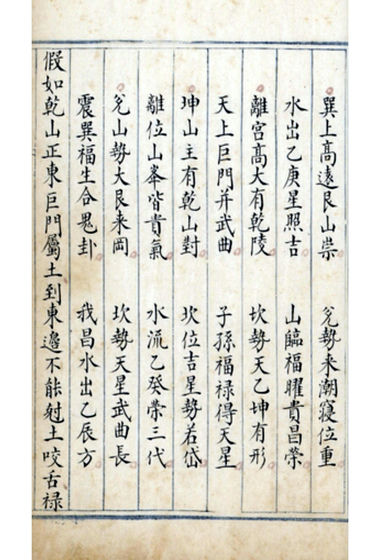 巽上高遠艮山崇　兌勢来潮寢位重
水出乙庚星照吉　山臨福曜貴昌榮
離宮高大有乾陵　坎勢天乙坤有形
天上巨門并武曲　子孫福禄得天星
坤山主有乾山對　坎位吉星勢若岱
離位山峯皆貴氣　水流乙癸榮三代
兌山勢大艮来岡　坎勢天星武曲長
震巽福生合晃卦　我昌水出乙辰方
假如乾山正東巨門屬土到東邊不能尅土咬舌禄